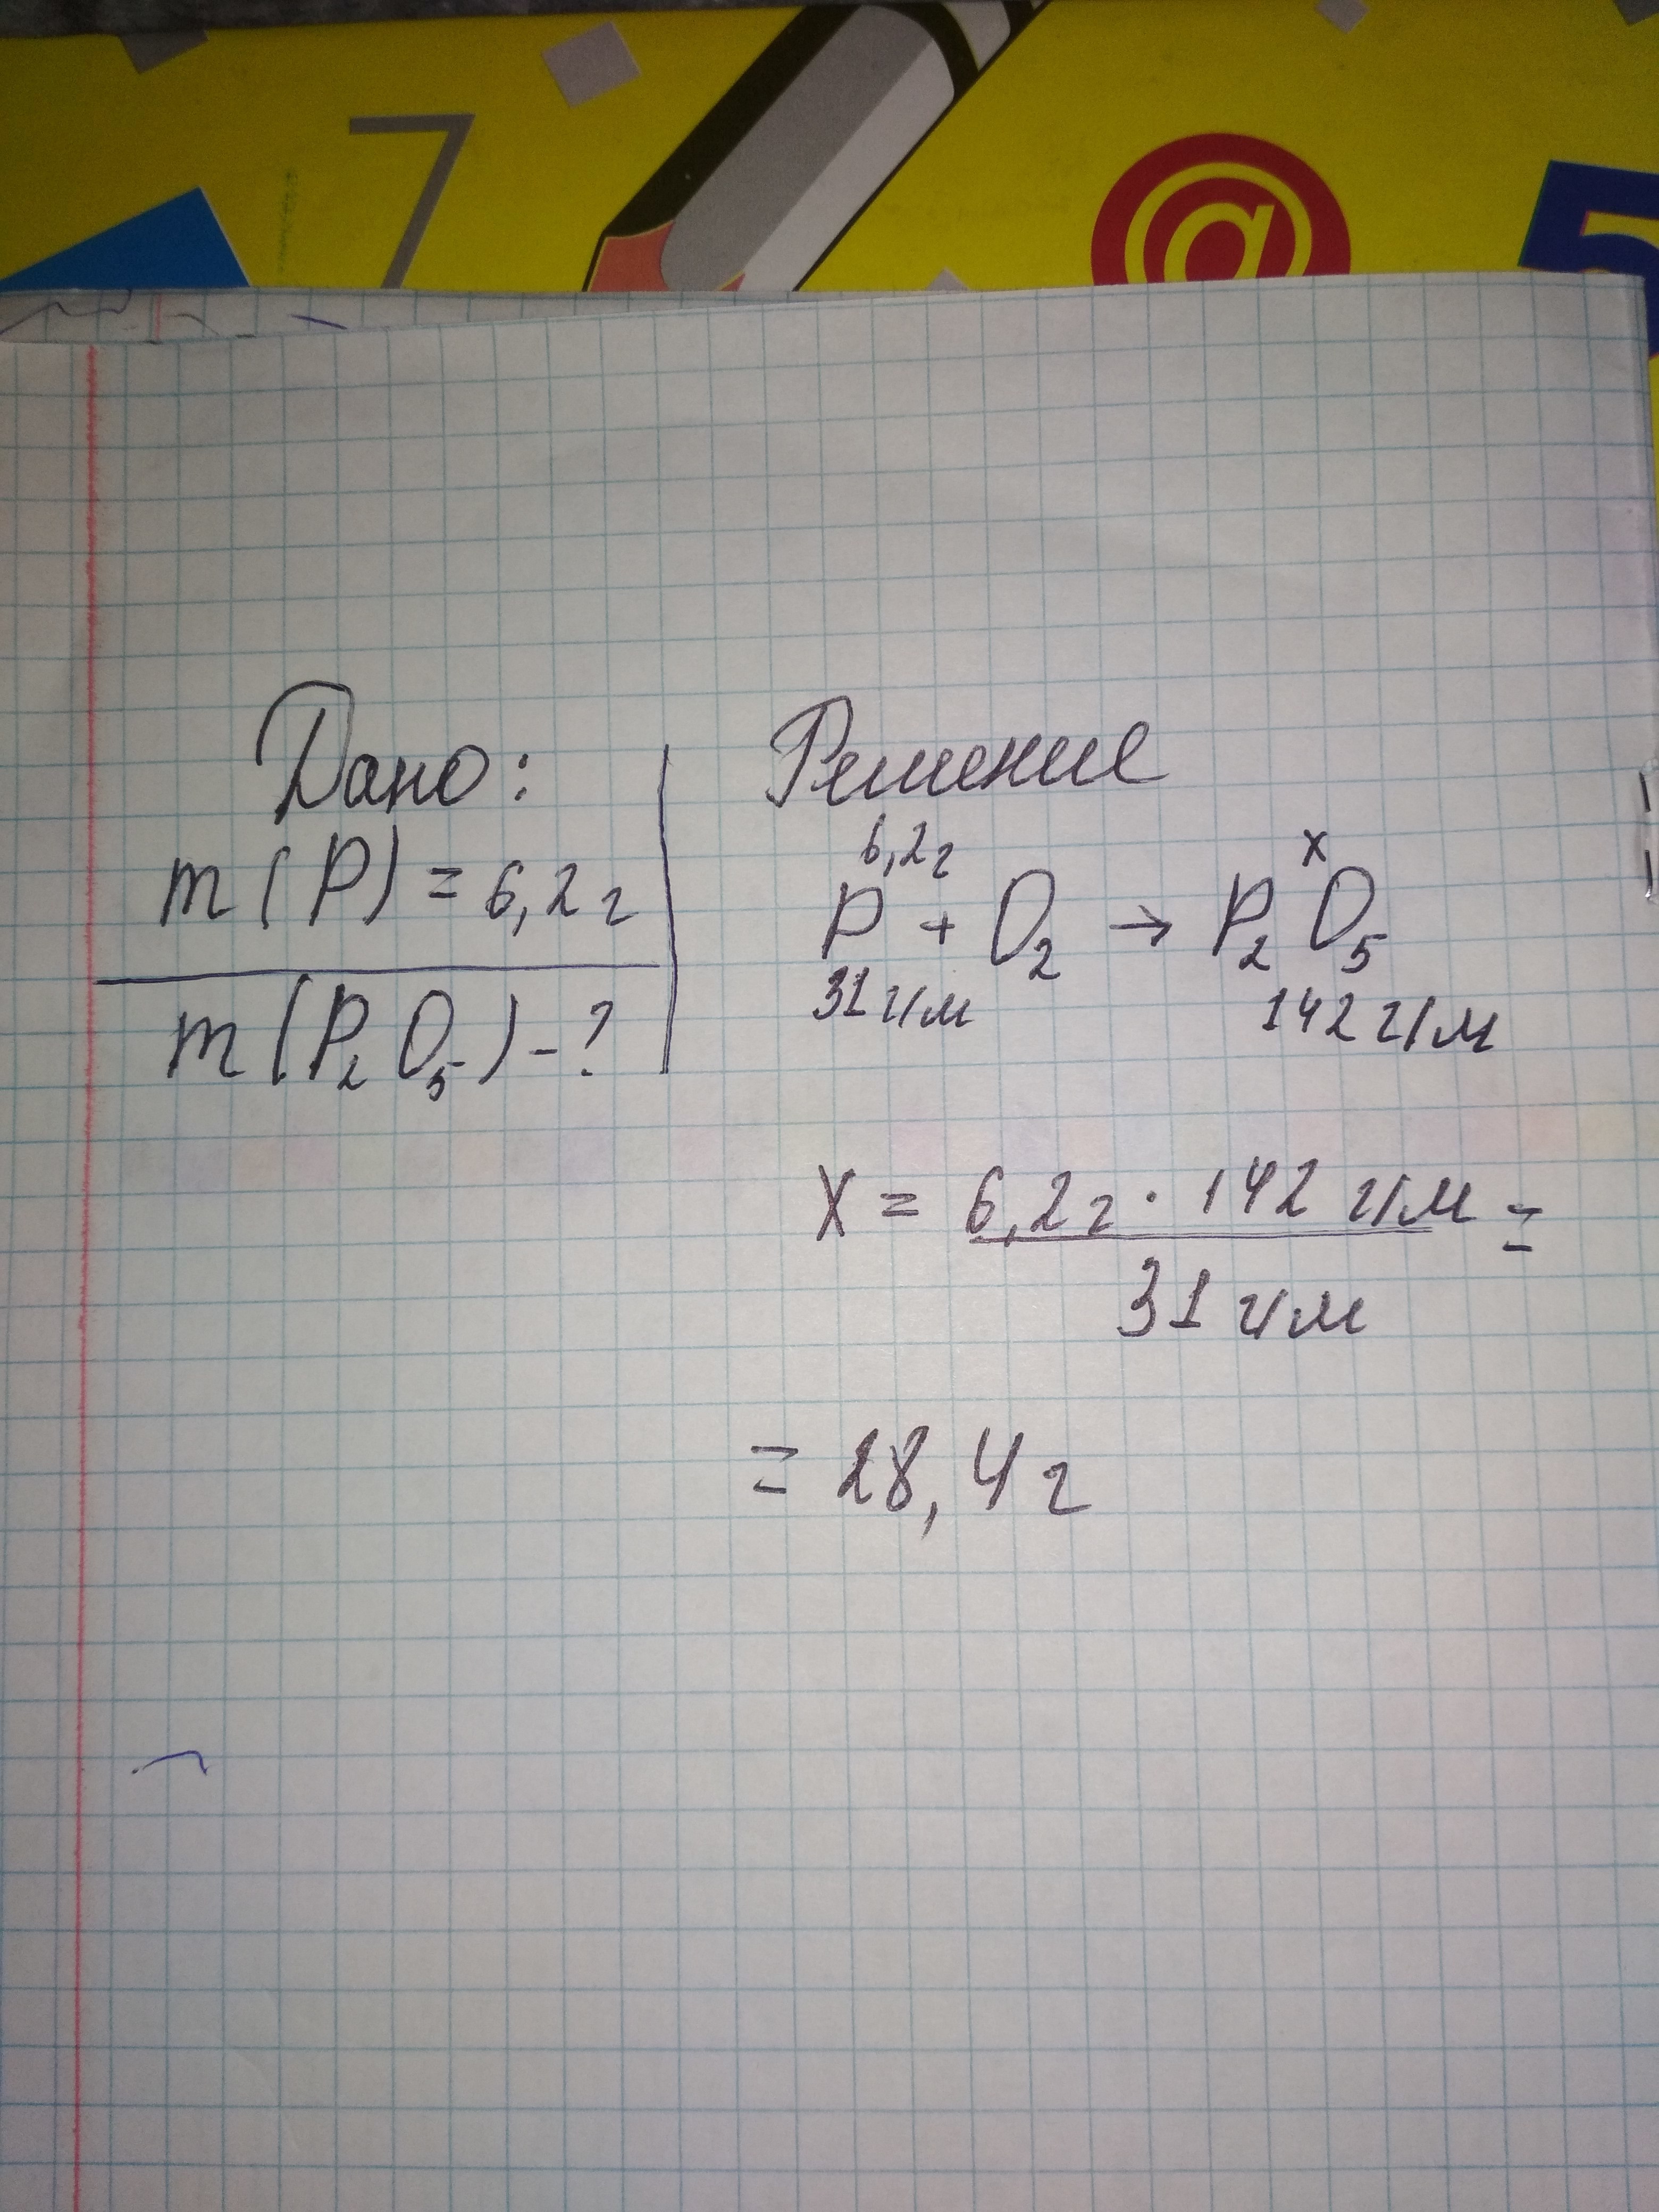 7 @ 5
Дано:
m(P) = 6,2 г
m(P₂O₅) - ?
Решение
6,2 г x
P + O₂ → P₂O₅
31 г/м 142 г/м
X = 6,2 г · 142 г/м =
31 г/м
= 28,4 г